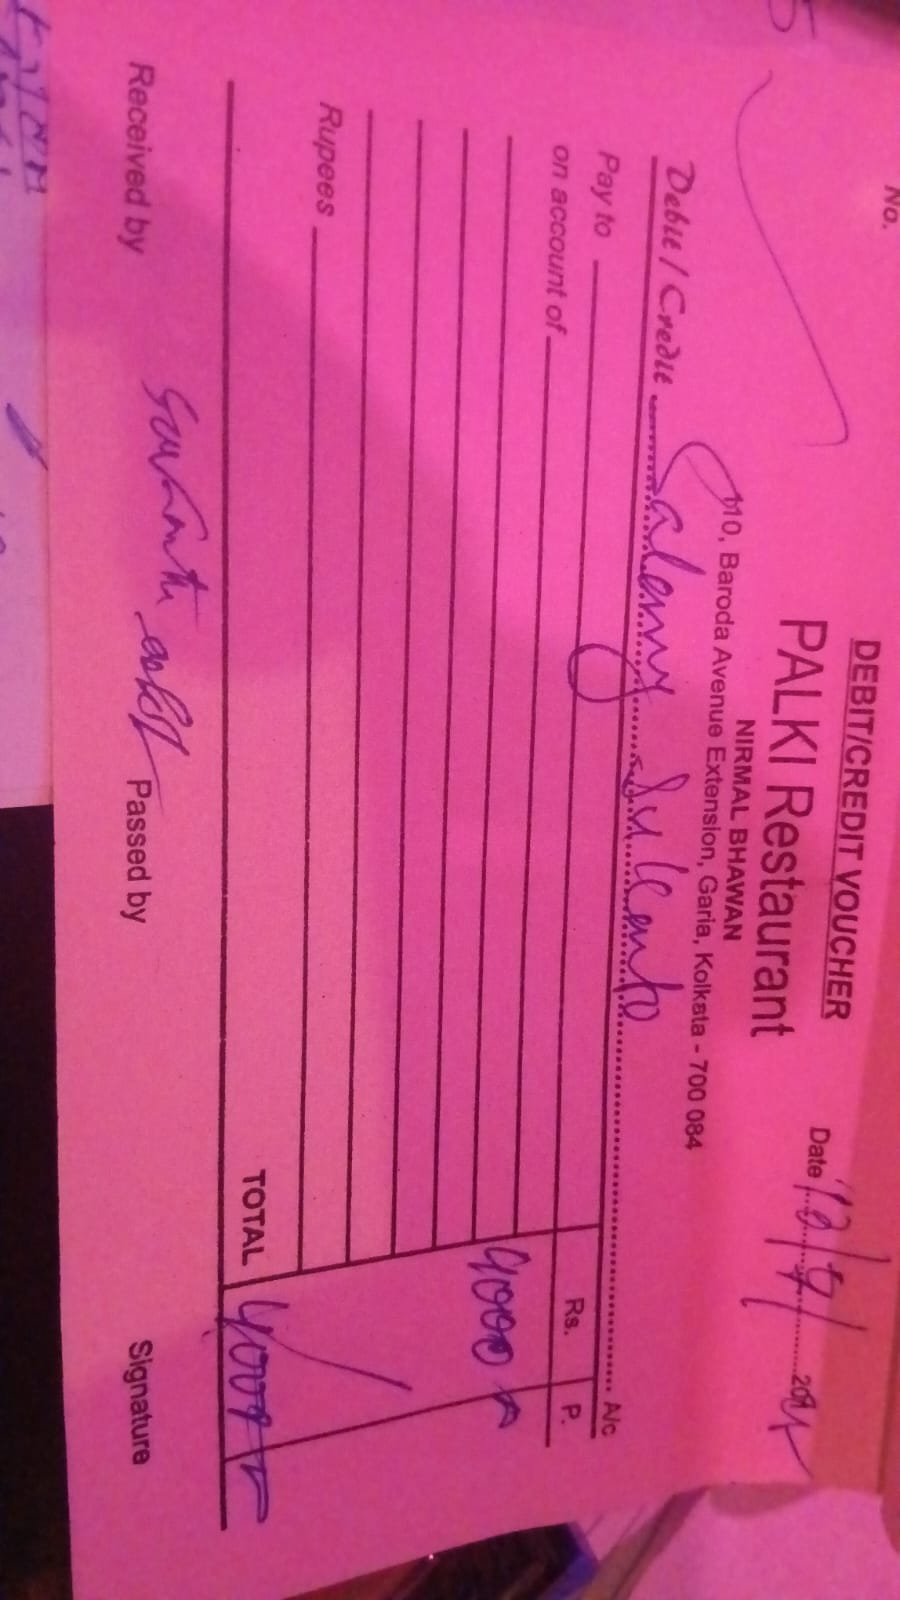 No.
DEBIT/CREDIT VOUCHER
PALKI Restaurant
NIRMAL BHAWAN
110, Baroda Avenue Extension, Garia, Kolkata - 700 084
Date 12/9/ 2024
Debit / Credit Salary Sukanta A/c
Pay to Rs. P.
on account of
4000
Rupees
TOTAL 4000
Received by Passed by Signature